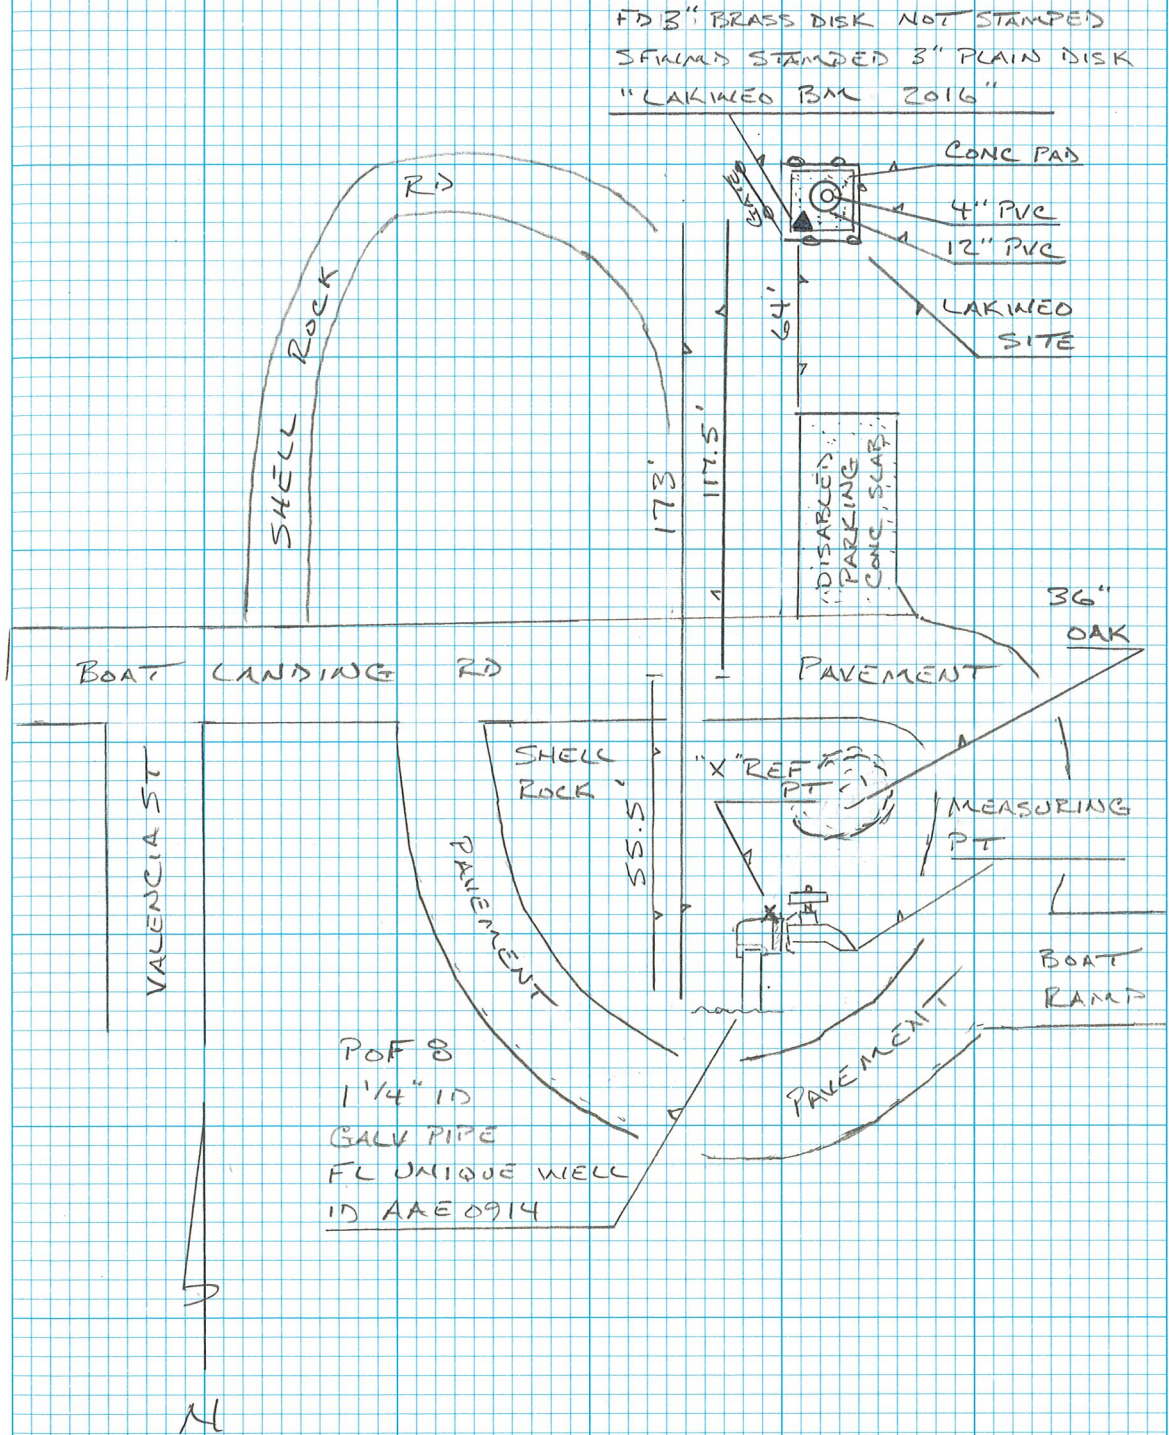 FD 3" BRASS DISK NOT STAMPED
SFWMD STAMPED 3" PLAIN DISK
"LAKINEO BM 2016"
CONC PAD
4" PVC
12" PVC
LAKINEO
SITE
RD
SHELL ROCK
64'
117.5'
173'
DISABLED
PARKING
CONC. SLAB
36"
OAK
BOAT LANDING RD
PAVEMENT
SHELL
ROCK
"X" REF
PT
MEASURING
PT
55.5'
VALENCIA ST
PAVEMENT
BOAT
RAMP
PAVEMENT
POF 8
1 1/4" ID
GALV PIPE
FL UNIQUE WELL
ID AAE0914
N